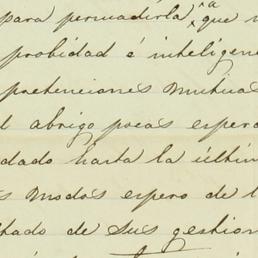 para persuadirla á que
probidad é inteligen
pretenciones mutuas
abrigo pocas espera
dado hasta la últim
modos espero de l
tado de sus gestion